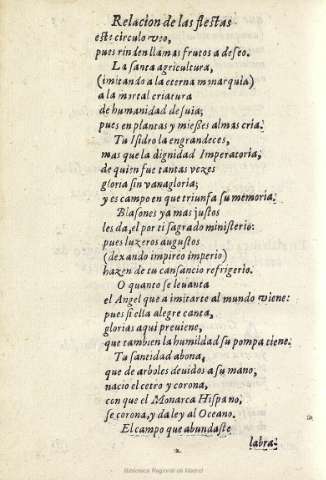 Relacion de las fiestas
este circulo veo,
pues rinden llamas frutos a deseo.
La santa agricultura,
(imitando a la eterna monarquia)
a la mortal criatura
de humanidad desuia;
pues en plantas y mieses almas cria.
Tu Isidro la engrandeces,
mas que la dignidad Imperatoria,
de quien fue tantas vezes
gloria sin vanagloria;
y es campo en que triunfa su memoria.
Blasones ya mas justos
les da, el por ti sagrado ministerio:
pues luzeros augustos
(dexando impireo imperio)
hazen de tu cansancio refrigerio.
O quanto se leuanta
el Angel que a imitarte al mundo viene:
pues si ella alegre canta,
glorias aqui preuiene,
que tambien la humildad su pompa tiene.
Tu santidad abona,
que de arboles deuidos a su mano,
nacio el cetro y corona,
con que el Monarca Hispano,
se corona, y da ley al Oceano.
El campo que abundaste
labra:
Biblioteca Regional de Madrid